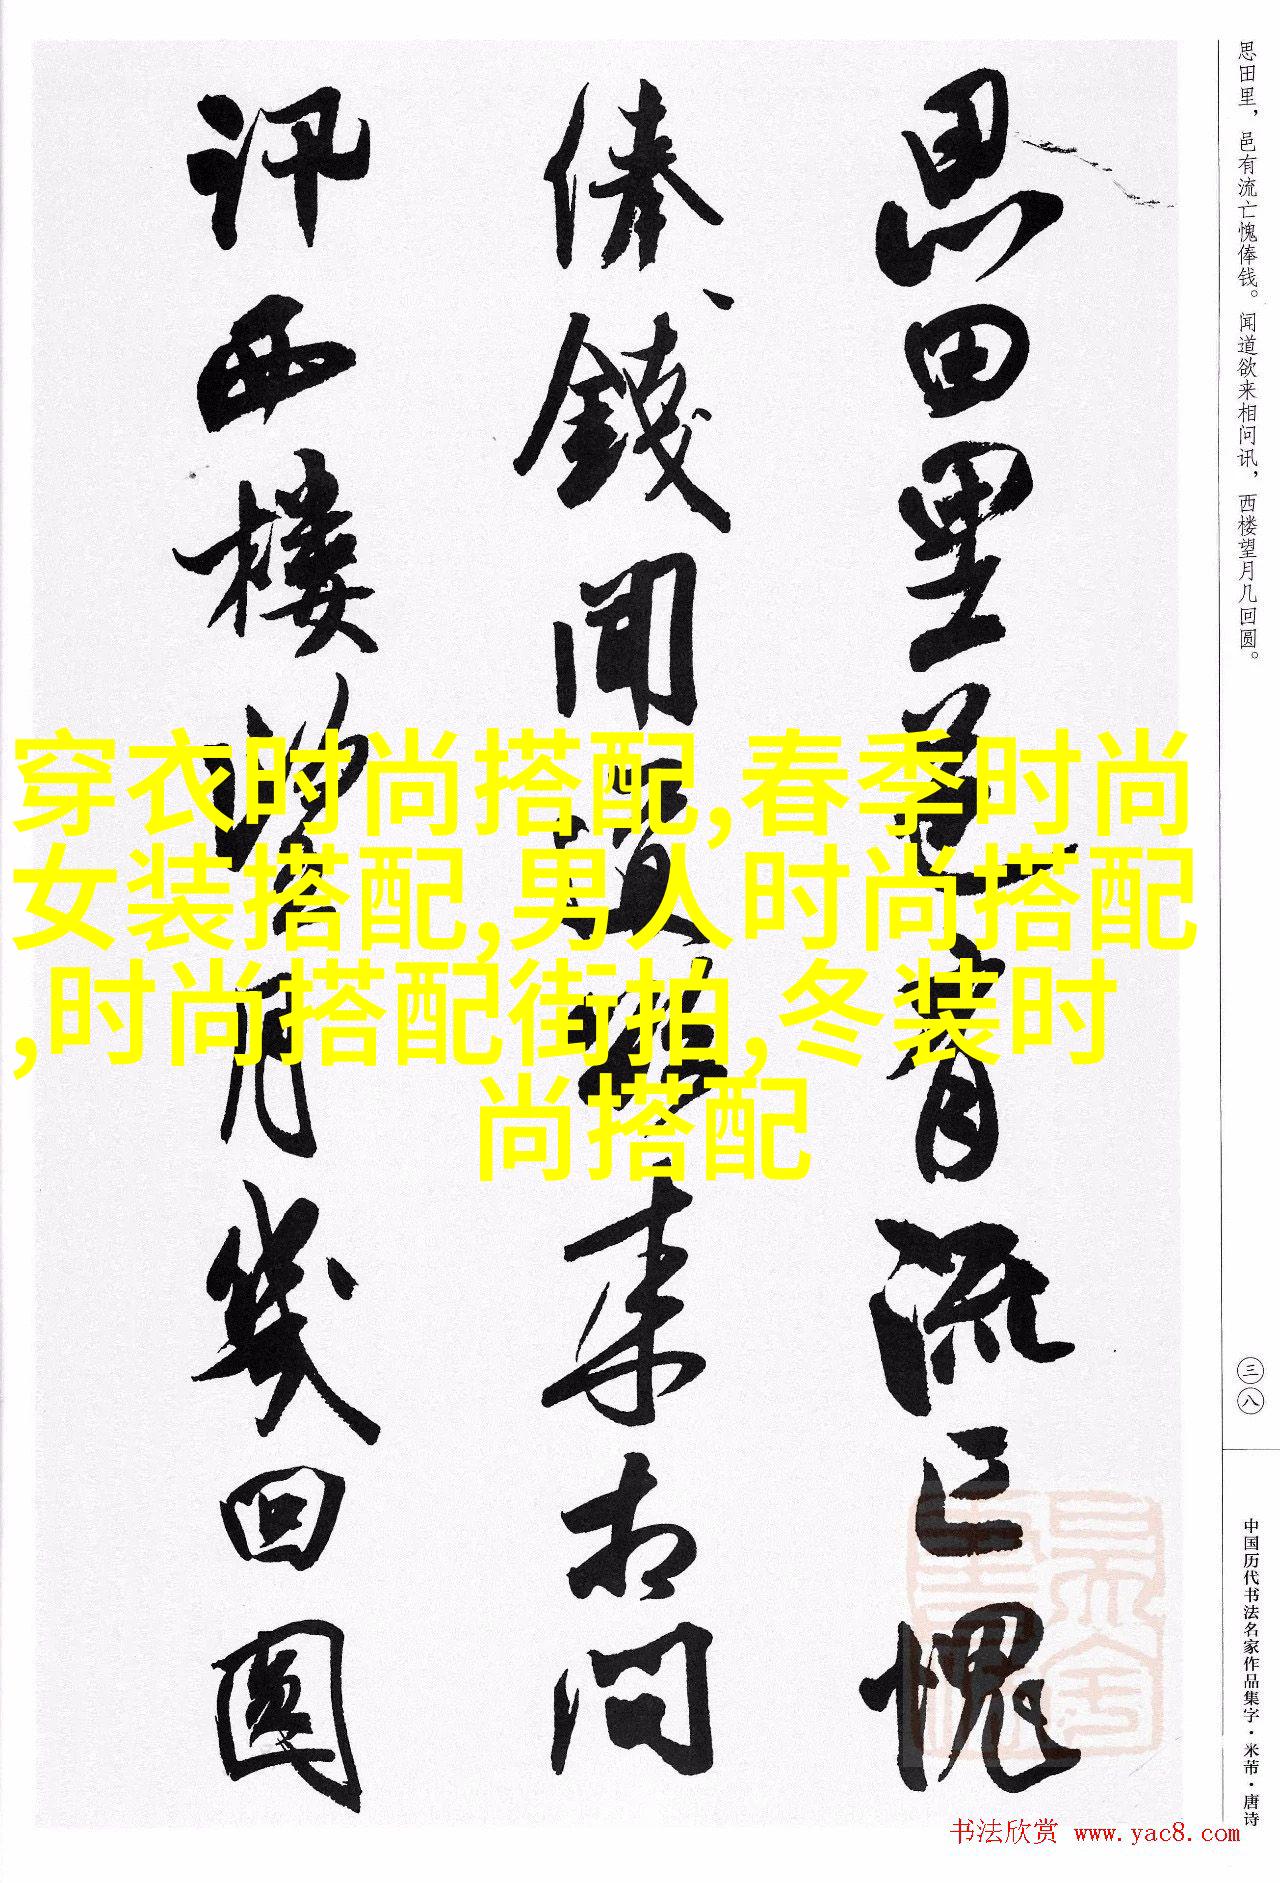 思田里邑有流亡愧
俸錢聞道欲来相問
訊西樓望月幾回圓
思田里，邑有流亡愧俸钱。闻道欲来相问讯，西楼望月几回圆。
三八
中国历代书法名家作品集字·米芾·唐诗
穿衣时尚搭配,春季时尚
女装搭配,男人时尚搭配
,时尚搭配街拍,冬装时
尚搭配
书法欣赏 www.yac8.com